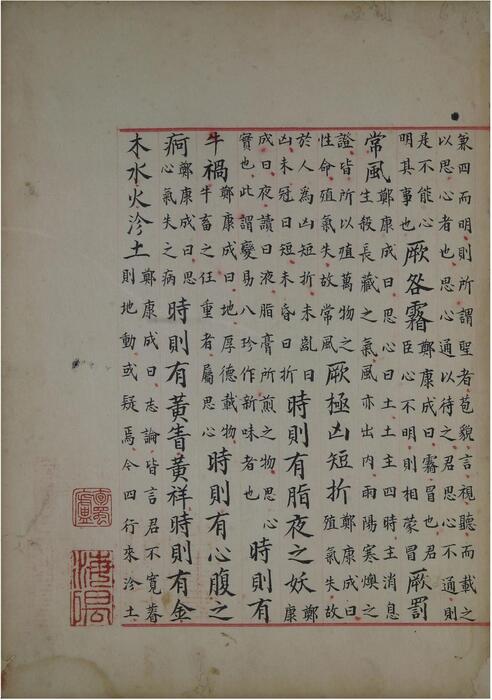 兼四而明則所謂聖者苞貌言視聽而載之
以思心者也思心通以待之君思心不通則
是不能心明其事也厥咎霿鄭康成曰霿冒也君臣心不明則相蒙冒厥罰
常風鄭康成曰思心曰土土主四時主消息生殺長藏之氣風亦出內雨陽寒燠之
證皆所以殖萬物之性命殖氣失故常風厥極凶短折鄭康成曰殖氣失故
於人為凶短折未齓曰凶未冠曰短未昏曰折時則有脂夜之妖鄭康
成曰夜讀曰液脂膏所煎之物思心實也此謂變易八珍作新味者也時則有
牛禍鄭康成曰地厚德載物牛畜之任重者屬思心時則有心腹之
痾鄭康成曰思心氣失之病時則有黃眚黃祥時則有金
木水火沴土鄭康成曰志論皆言君不寬則地動或疑焉今四行來沴土